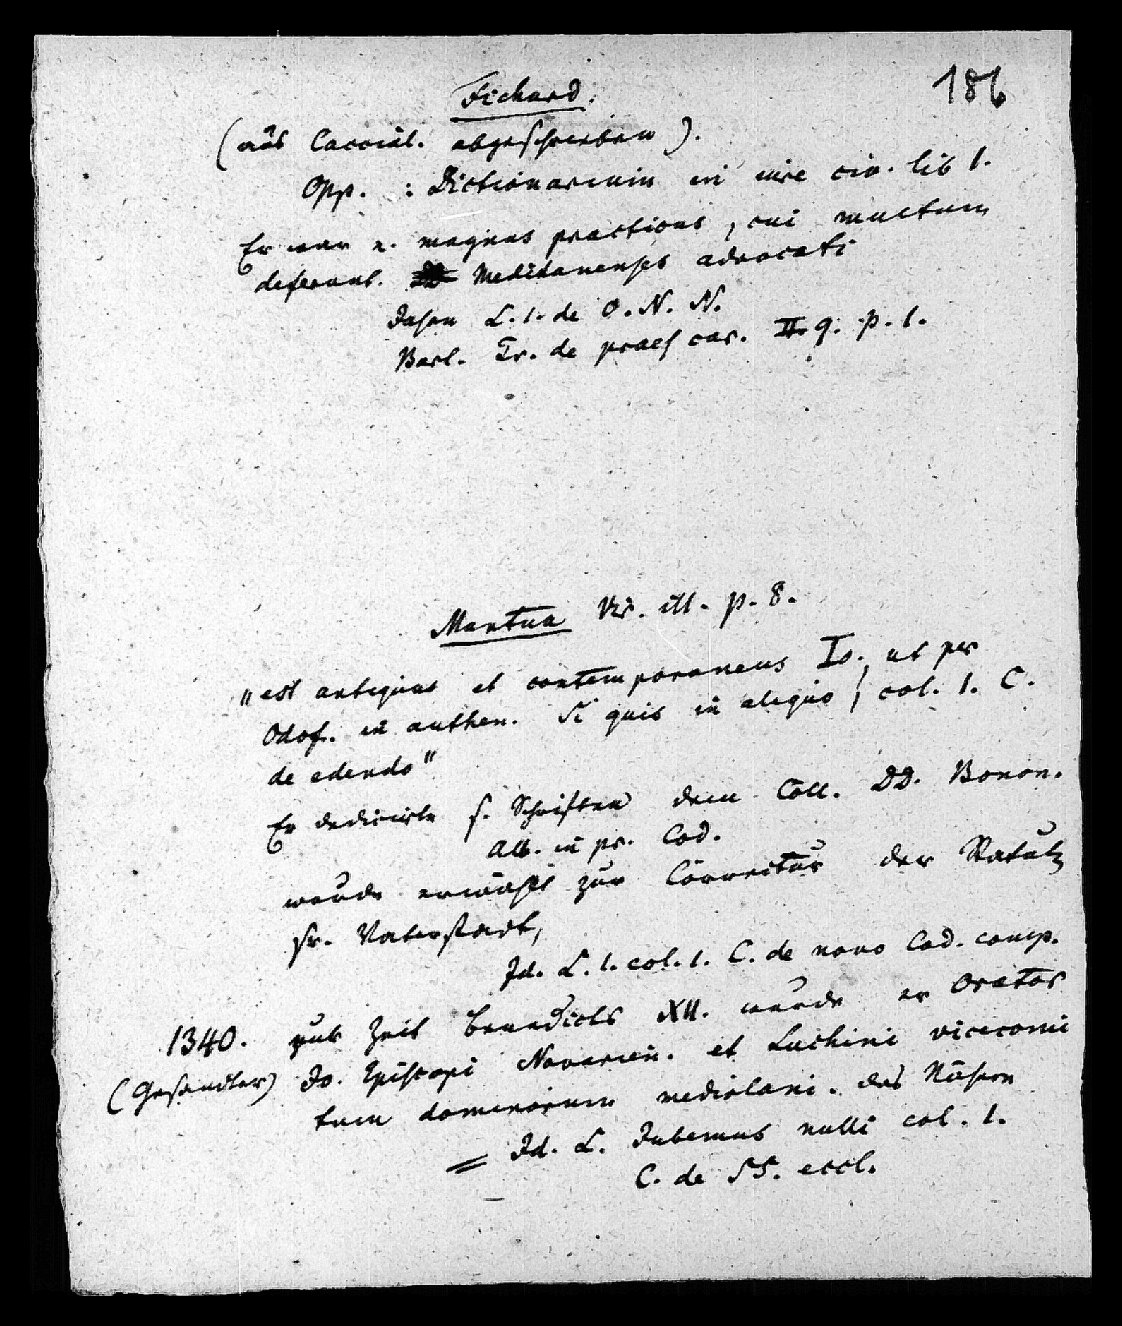 186
Fichard.
(aus Caccial. abgeschrieben).
Opp. : Dictionarium in iure civ. lib 1.
Er war e. magnus practicus, cui multum
deferunt. Mediolanenses advocati
Jason L. 1. de O. N. N.
Barl. Tr. de praes car. II. q. p. 1.
Mantua Vir. ill. p. 8.
"est antiquus et contemporaneus Io., ut per
Odof. in authen. Si quis in aliquo, col. 1. C.
de edendo"
Er dedicirte s. Schriften dem Coll. DD. Bonon.
Alb. in pr. Cod.
wurde erwählt zur Correctur der Statuten
sr. Vaterstadt,
Id. L. 1. col. 1. C. de novo Cod. comp.
1340. zur Zeit Benedicts XII. wurde er Orator
(Gesandter) Io. Episcopi Novarien. et Luchini vicecomi
tum dominorum mediolani. des Nähern
= Id. L. Jubemus nulli col. 1.
C. de SS. eccl.